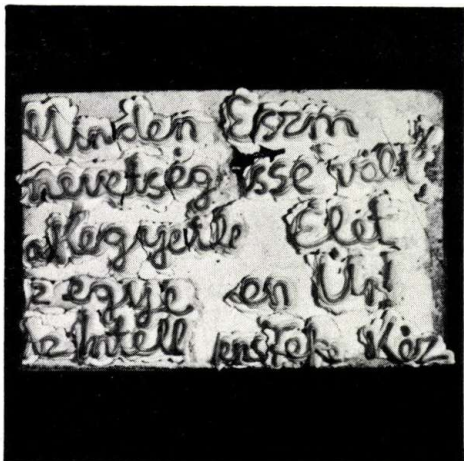 Minden Eszm
nevetség ssé vált
a Kegyetle Élet
z egye en Úr!
z Intell ens Fek Kéz